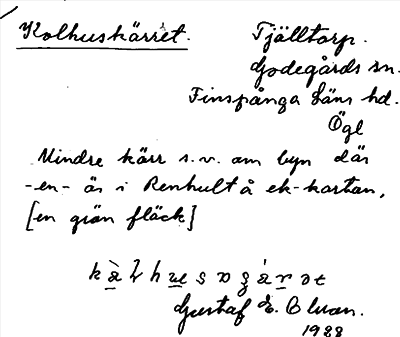 Kolhuskärret.
Tjälltorp.
Godegårds sn.
Finspånga läns hd.
Ögl
Mindre kärr s.v. om byn där
-en- är i Renhult å ek-kartan,
[en grön fläck]
Gustaf E.
1928